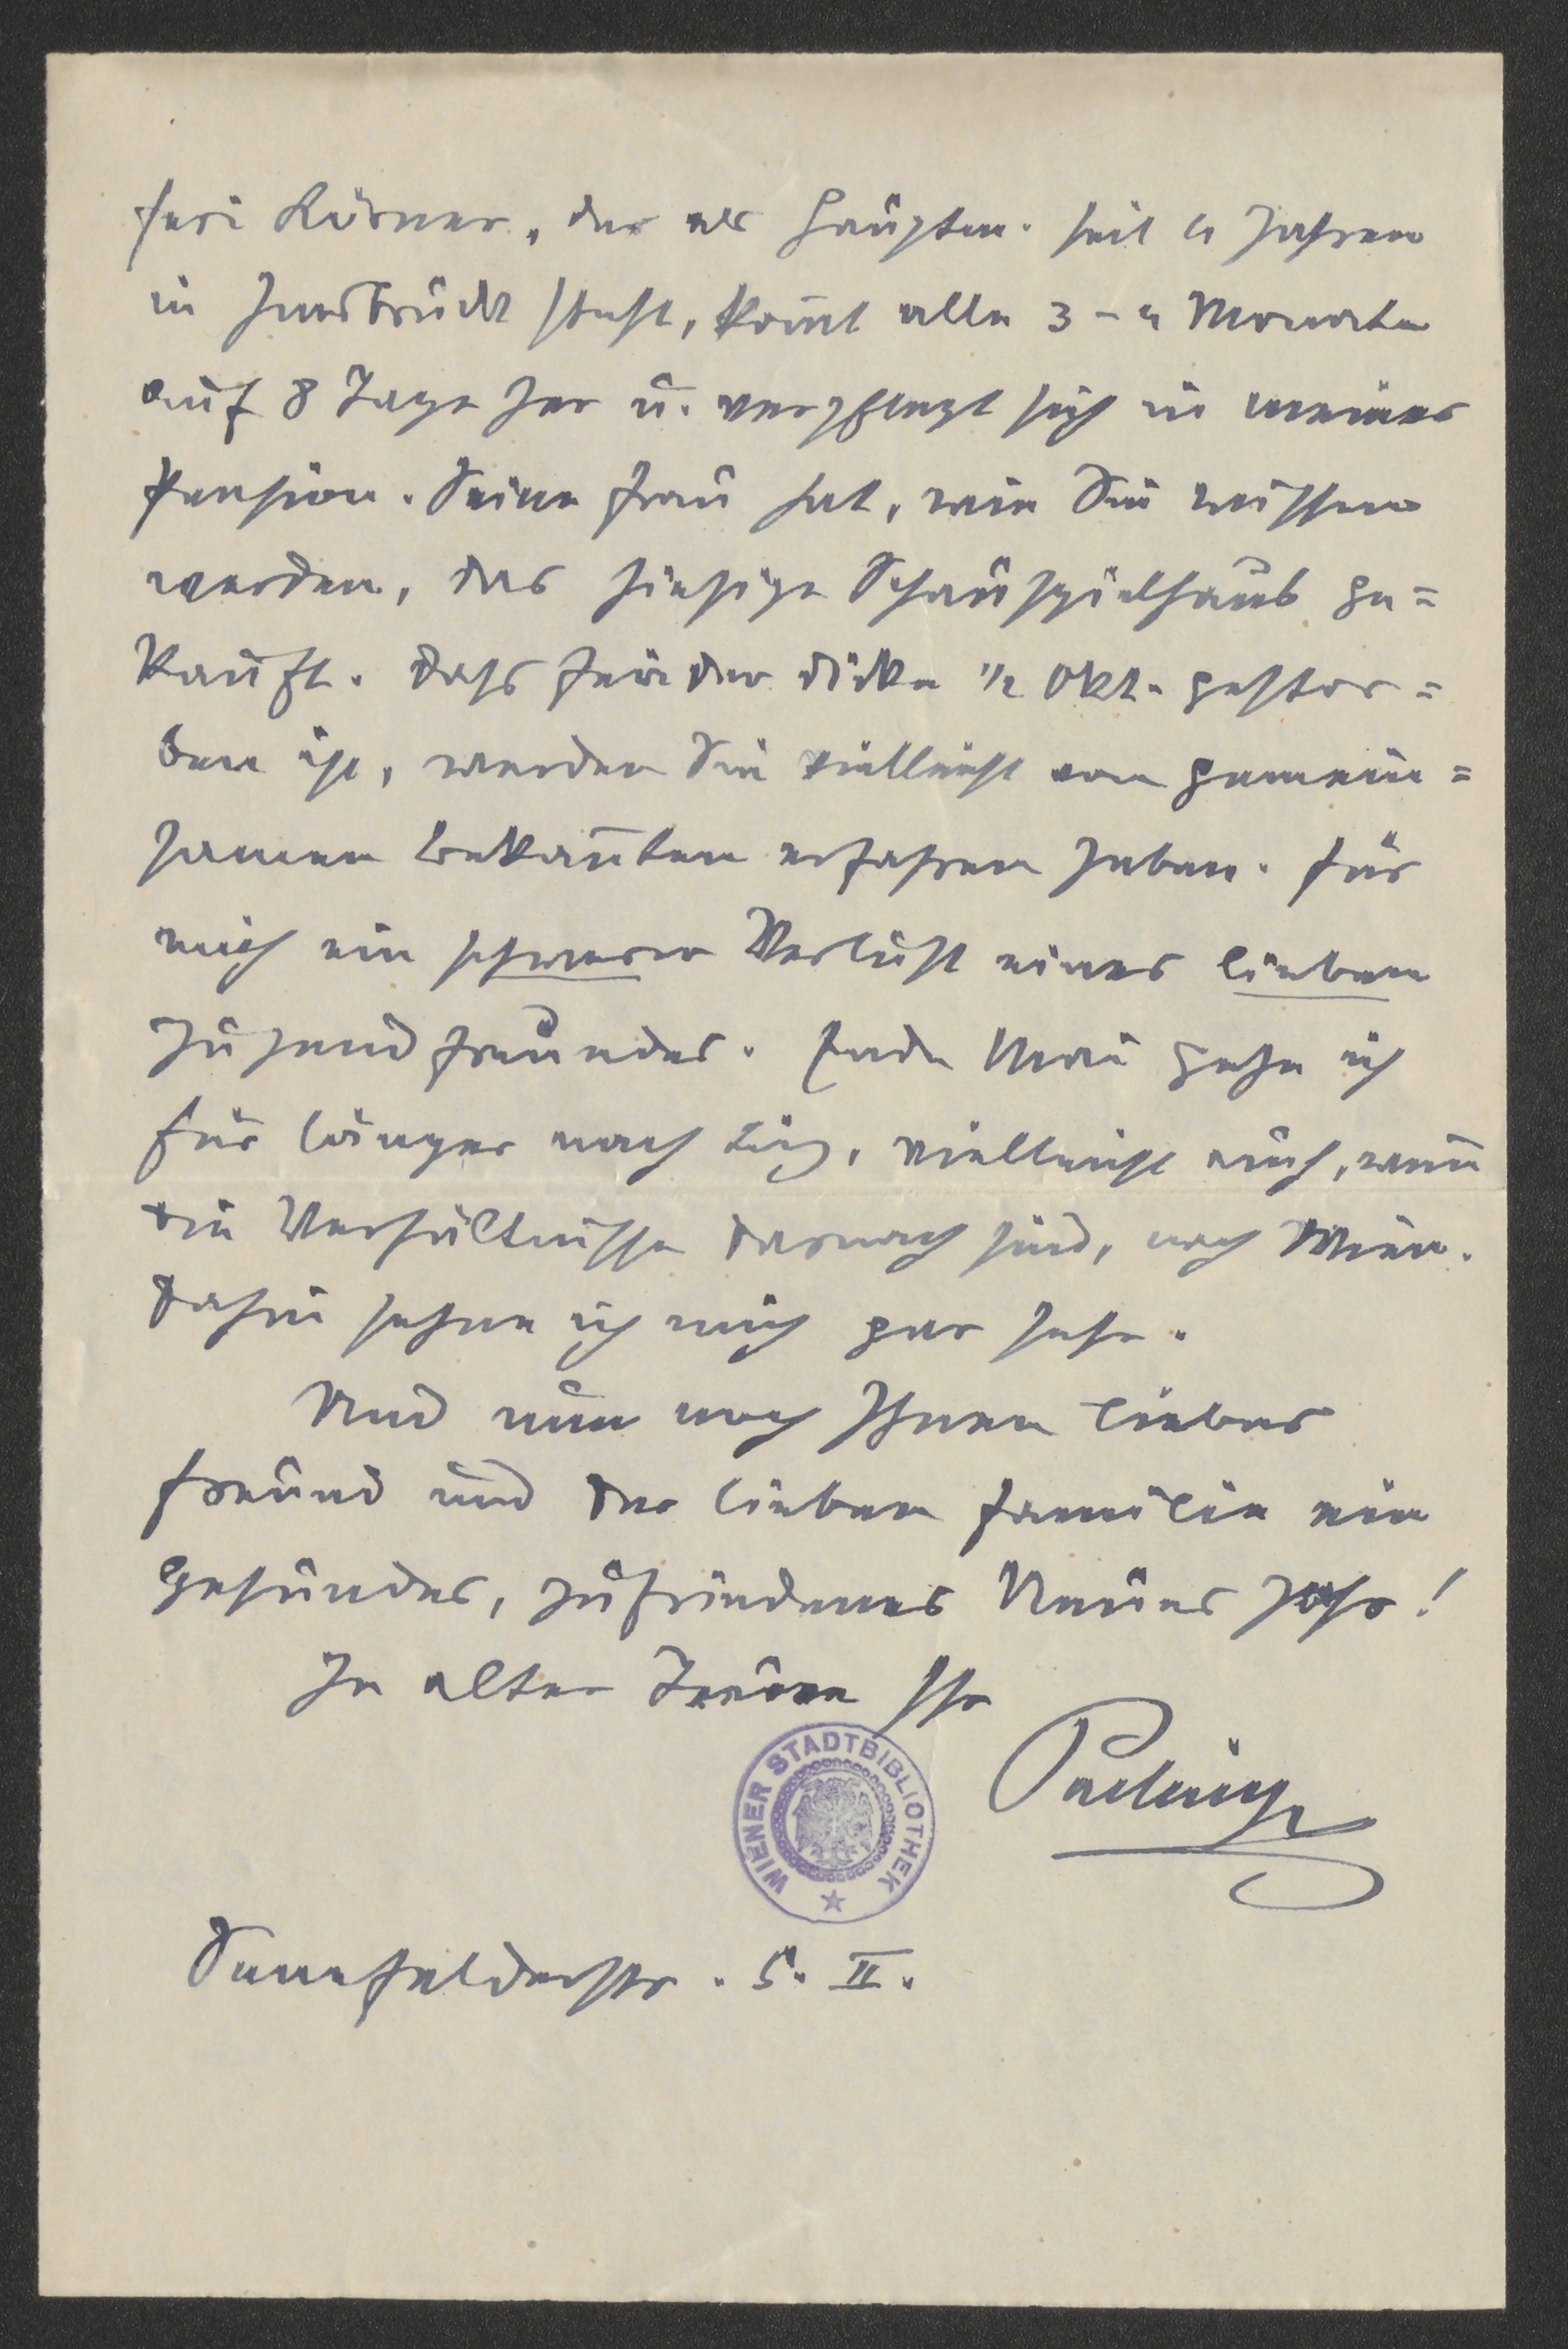 Feri Körner, der als Hauptm. seit 4 Jahren
in Innsbruck steht, kom̄t alle 3–4 Monate
auf 8 Tage her u. verpflegt sich in meiner
Pension. Seine Frau hat, wie Sie wissen
werden, das hiesige Schauspielhaus ge=
kauft. Dass der dicke ½ Okt. gestor=
ben ist, werden Sie vielleicht von gemein=
samen Bekan̄ten erfahren haben. Für
mich ein schwerer Verlust eines lieben
Jugendfreundes. Ende Mai gehe ich
für länger nach Linz, vielleicht auch, wen̄
die Verhältnisse darnach sind, nach Wien.
Dahin sehne ich mich gar sehr.
Und nun noch Ihnen lieber
Freund und der lieben Familie ein
gesundes, zufriedenes Neues Jahr!
In alter Treue Ihr
WIENER STADTBIBLIOTHEK
5. II.